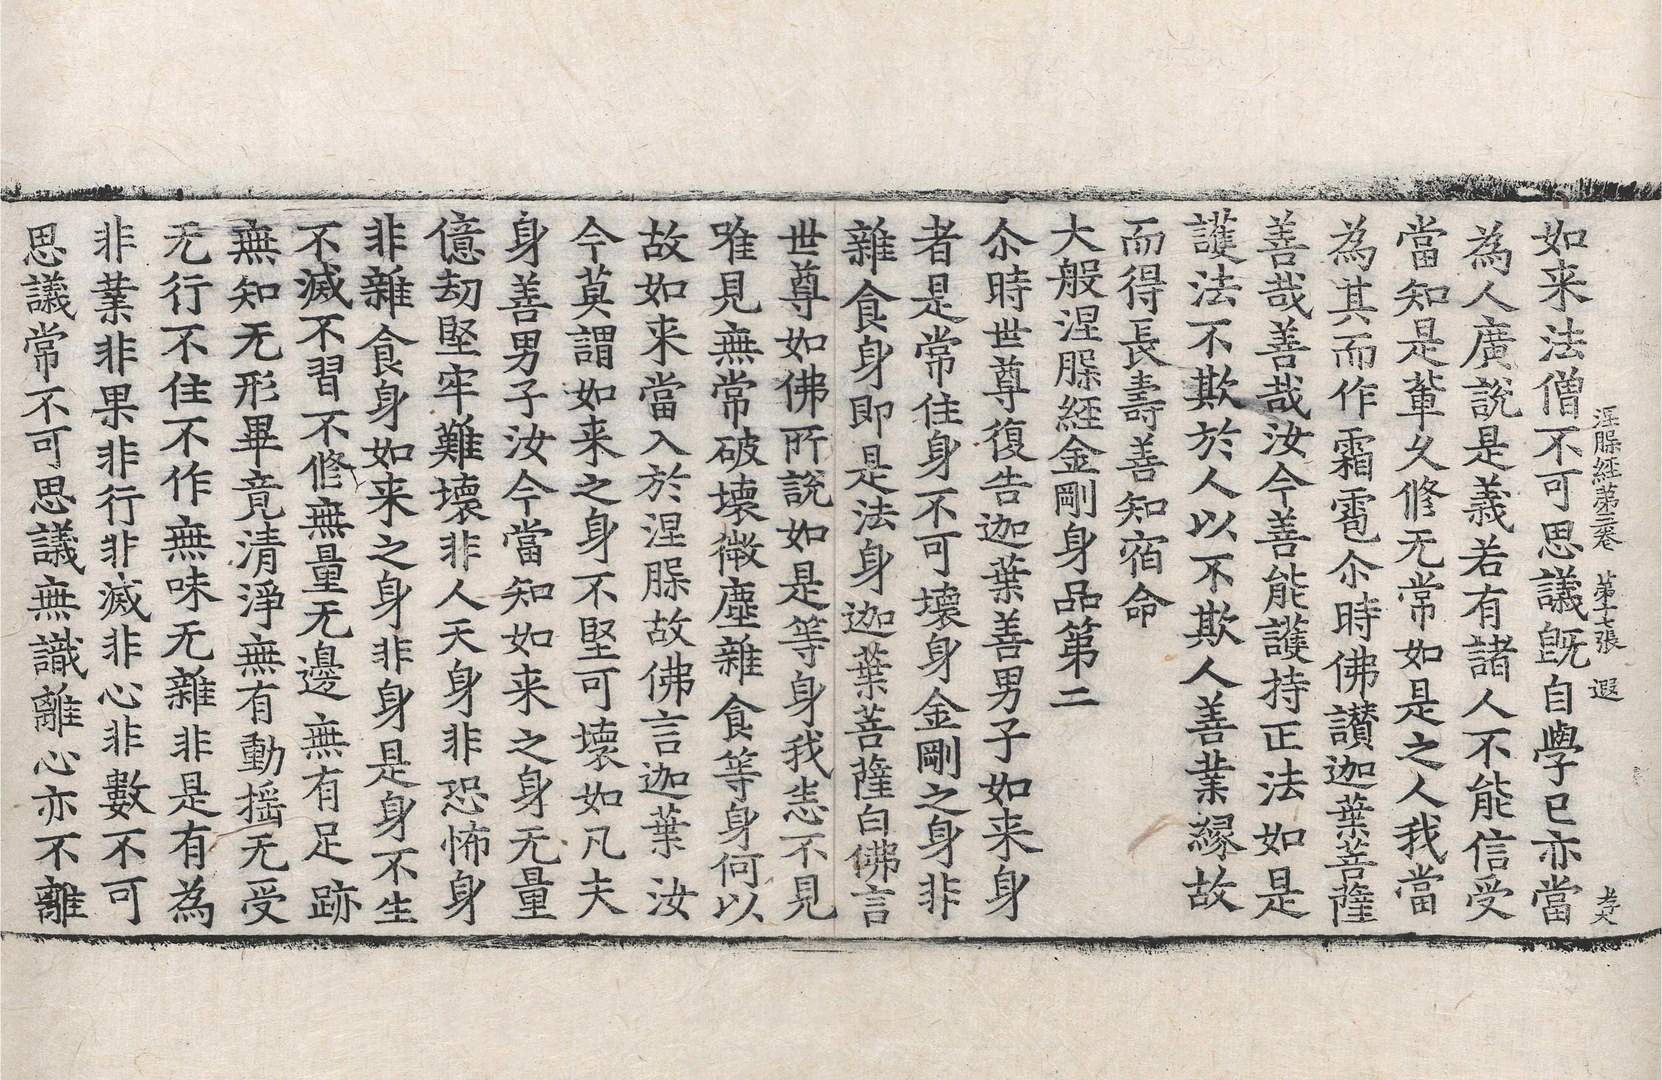 涅槃經第三卷 第十七張 遐
如来法僧不可思議旣自學已亦當
為人廣說是義若有諸人不能信受
當知是輩久修无常如是之人我當
為其而作霜雹尒時佛讃迦葉菩薩
善哉善哉汝今善能護持正法如是
護法不欺於人以不欺人善業縁故
而得長壽善知宿命
大般涅槃經金剛身品第二
尒時世尊復告迦葉善男子如来身
者是常住身不可壞身金剛之身非
雜食身即是法身迦葉菩薩白佛言
世尊如佛所說如是等身我悉不見
唯見無常破壞微塵雜食等身何以
故如来當入於涅槃故佛言迦葉汝
今莫謂如来之身不堅可壞如凡夫
身善男子汝今當知如来之身无量
億劫堅牢難壞非人天身非恐怖身
非雜食身如来之身非身是身不生
不滅不習不修無量无邊無有足跡
無知无形畢竟清淨無有動揺无受
无行不住不作無味无雜非是有為
非業非果非行非滅非心非數不可
思議常不可思議無識離心亦不離